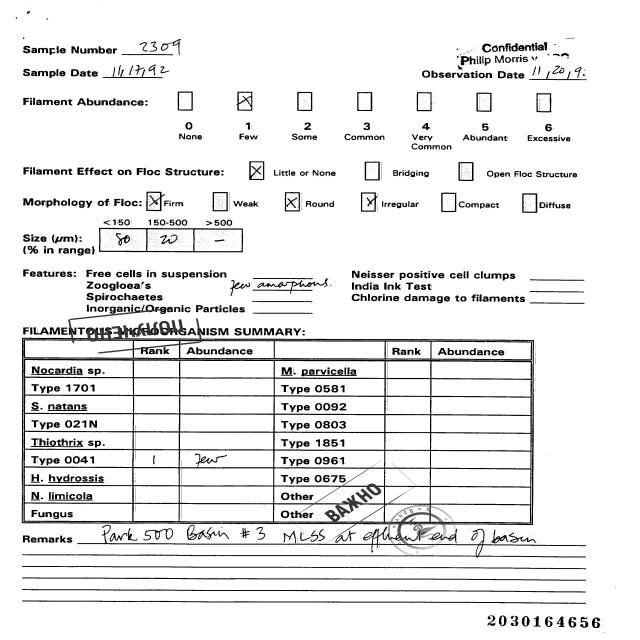 Sample Number 2309
Confidential
Philip Morris
Sample Date 11,17,92
Observation Date 11,20,9
Filament Abundance:
0 1 2 3 4 5 6
None Few Some Common Very Common Abundant Excessive
Filament Effect on Floc Structure: Little or None Bridging Open Floc Structure
Morphology of Floc: Firm Weak Round Irregular Compact Diffuse
<150 150-500 >500
Size (µm): 80 20 –
(% in range)
Features: Free cells in suspension
Zoogloea's few amorphous.
Spirochaetes
Inorganic/Organic Particles
Neisser positive cell clumps
India Ink Test
Chlorine damage to filaments
FILAMENTOUS MICROORGANISM SUMMARY:
Rank Abundance Rank Abundance
Nocardia sp. M. parvicella
Type 1701 Type 0581
S. natans Type 0092
Type 021N Type 0803
Thiothrix sp. Type 1851
Type 0041 1 Few Type 0961
H. hydrossis Type 0675
N. limicola Other
Fungus Other
ВАЖНО
Remarks Park 500 Basin #3 MLSS at effluent end of basin
2030164656